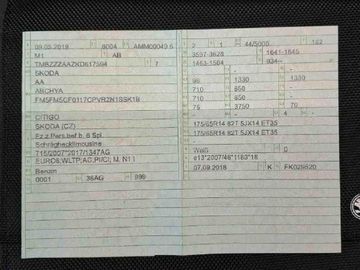 09.05.2019 8004 AMM00049 5
M1 AB
TMBZZZAAZKD617594 7
SKODA
AA
ABCHYA
CITIGO
SKODA (CZ)
Fz.z.Pers.bef.b. 8 Spl.
Schräghecklimousine
715/2007*2017/1347AG
Benzin
0001 36AG 999
2 1 44/5000 162
3597-3628 1641-1645
1463-1504 934--
- -
96 1330 -
710 850 -
710 850 -
75 3750 70
- - 4
175/65R14 82T 5JX14 ET35
-
175/65R14 82T 5JX14 ET35
-
Weiß 0
e13*2007/46*1163*18
07.09.2018 K FK029520